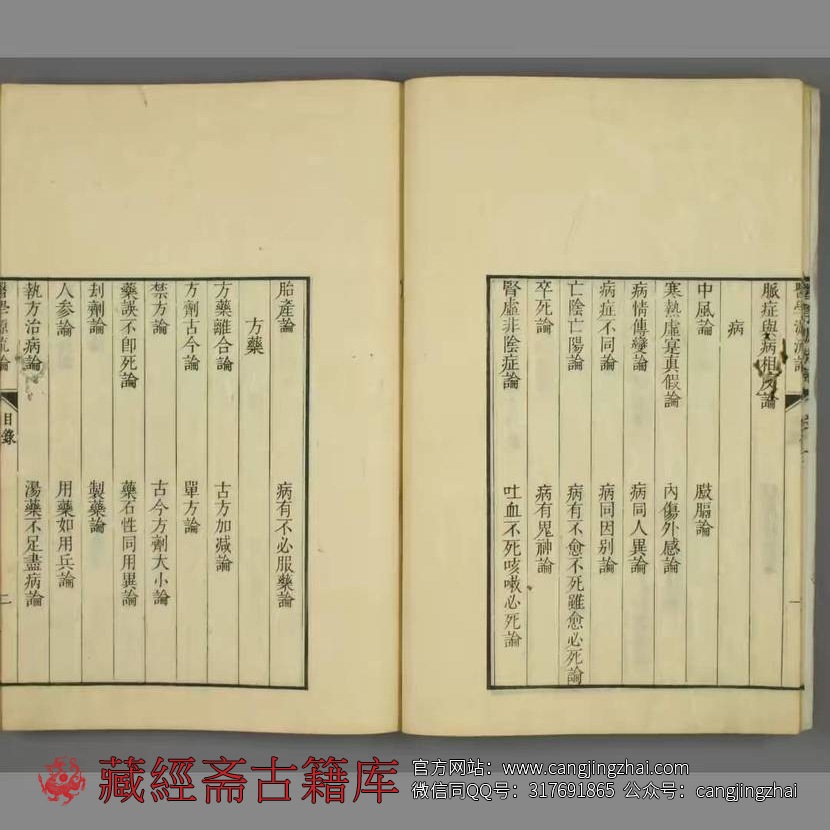 醫學源流論
脈症與病相反論
病
中風論 臌膈論
寒熱虛寔真假論 內傷外感論
病情傳變論 病同人異論
病症不同論 病同因别論
亡陰亡陽論 病有不愈不死雖愈必死論
卒死論 病有鬼神論
腎虛非陰症論 吐血不死咳嗽必死論
胎產論 病有不必服藥論
方藥
方藥離合論 古方加減論
方劑古今論 單方論
禁方論 古今方劑大小論
藥誤不卽死論 藥石性同用異論
刦劑論 製藥論
人參論 用藥如用兵論
執方治病論 湯藥不足盡病論
醫學源流論 目錄 二
藏經斋古籍库
官方网站：www.cangjingzhai.com
微信同QQ号：317691865 公众号：cangjingzhai